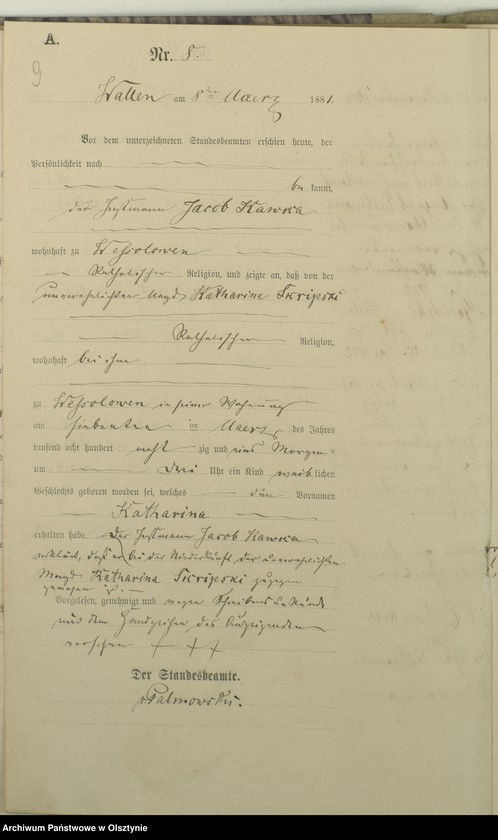 A.
9
Nr. 8.
Wallen am 8ten Maerz 1881.
Vor dem unterzeichneten Standesbeamten erschien heute, der
Persönlichkeit nach
be kannt,
der Instmann Jacob Kawka
wohnhaft zu Wessolowen
katholischer Religion, und zeigte an, daß von der
unverehelichten Magd Katharina Skripski
Katholischer Religion,
wohnhaft bei ihm
zu Wessolowen in seiner Wohnung
am siebenten ten Maerz des Jahres
tausend acht hundert acht zig und eins Morgens
um drei Uhr ein Kind weib lichen
Geschlechts geboren worden sei, welches den Vornamen
Katharina
erhalten habe. Der Instmann Jacob Kawka
erklärt, daß er bei der Niederkunft der unverehelichten
Magd Katharina Skripski zugegen
gewesen ist.
Vorgelesen, genehmigt und wegen Schreibensunkunde
mit dem Handzeichen des Anzeigenden
versehen + + +
Der Standesbeamte.
vPalmowski.
Archiwum Państwowe w Olsztynie